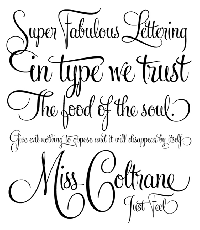 Super Fabulous Lettering
in type we trust
The food of the soul.
Give evil nothing to oppose and it will disappear by itself
Miss Coltrane
Just Feel